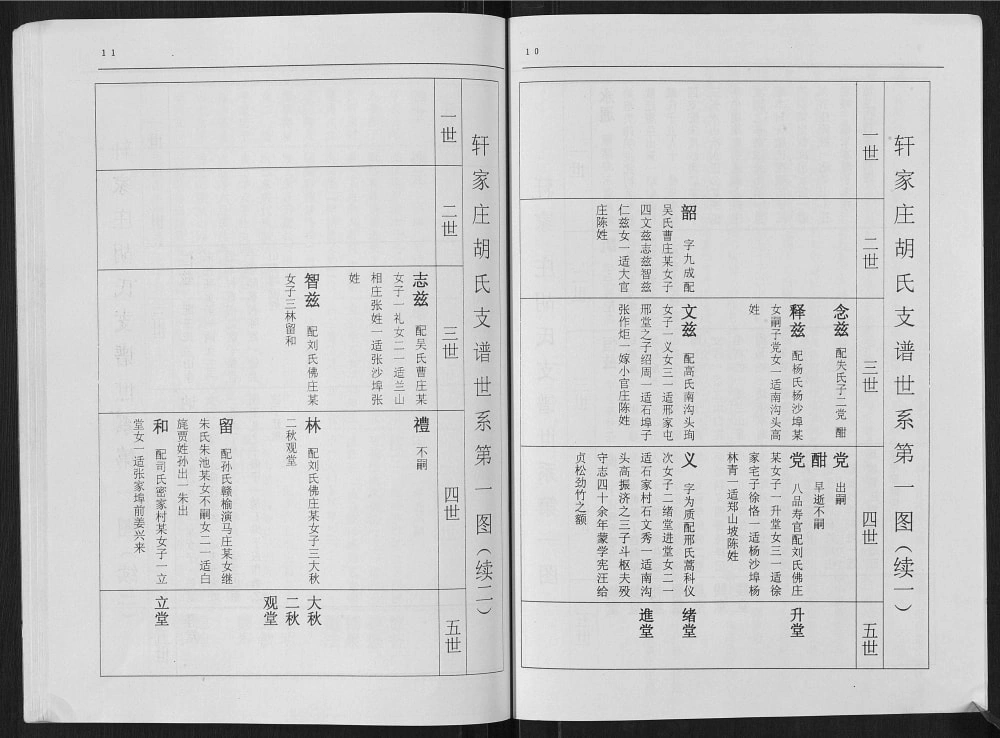 10
轩家庄胡氏支谱世系第一图（续一）
一世
二世
三世
四世
五世
韶 字九成配
吴氏曹庄某女子
四文兹志兹智兹
仁兹女一适大官
庄陈姓
念兹 配失氏子二党 酣
释兹 配杨氏杨沙埠某
女嗣子党女一适南沟头高
姓
文兹 配高氏南沟头珣
女子一义女三一适邢家屯
邢堂之子绍周一适石埠子
张作炬一嫁小官庄陈姓
党 出嗣
酣 早逝不嗣
党 八品寿官配刘氏佛庄
某女子一升堂女三一适徐
家宅子徐恪一适杨沙埠杨
林青一适郑山坡陈姓
义 字为质配邢氏蒿科仪
次女子二绪堂进堂女二一
适石家村石文秀一适南沟
头高振济之三子斗枢夫殁
守志四十余年蒙学宪汪给
贞松劲竹之额
升堂
绪堂
進堂
11
轩家庄胡氏支谱世系第一图（续二）
一世
二世
三世
四世
五世
志兹 配吴氏曹庄某
女子一礼女二一适兰山
相庄张姓一适张沙埠张
姓
智兹 配刘氏佛庄某
女子三林留和
禮 不嗣
林 配刘氏佛庄某女子三大秋
二秋观堂
留 配孙氏赣榆演马庄某女继
朱氏朱池某女不嗣女二一适白
旄贾姓孙出一朱出
和 配司氏密家村某女子一立
堂女一适张家埠前姜兴来
大秋
二秋
观堂
立堂